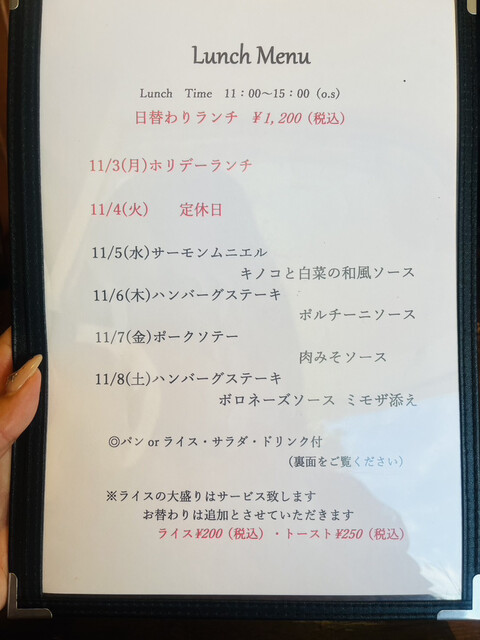 Lunch Menu
Lunch Time 11：00～15：00（o.s）
日替わりランチ ￥1,200（税込）
11/3(月)ホリデーランチ
11/4(火) 定休日
11/5(水)サーモンムニエル
キノコと白菜の和風ソース
11/6(木)ハンバーグステーキ
ポルチーニソース
11/7(金)ポークソテー
肉みそソース
11/8(土)ハンバーグステーキ
ボロネーズソース ミモザ添え
◎パン or ライス・サラダ・ドリンク付
（裏面をご覧ください）
※ライスの大盛りはサービス致します
お替わりは追加とさせていただきます
ライス¥200（税込）・トースト¥250（税込）